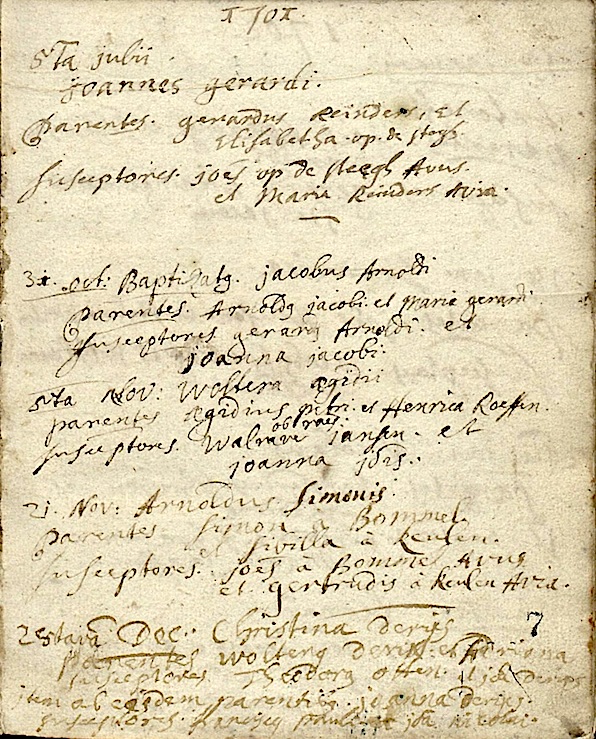 1701.
5ta julii.
joannes gerardi.
Parentes. gerardus Reinders, et
Elisabetha op. de steegh
susceptores. joēs op de steegh Avus.
et Maria Reinders Avia.
31. oct: Baptizatg. jacobus Arnoldi
Parentes. Arnoldg jacobi et Maria gerardi.
susceptores gerarg Arnoldi. et
joanna jacobi.
5ta Nov: Woltera Ægidii
parentes Ægidius petri et Henrica Roessen.
susceptores. Walrave jansen. et
joanna jois.
21. Nov: Arnoldus Simonis.
Parentes Simon à Bommel
et Sivilla à Keulen.
susceptores. joēs à Bommel Avus
et gertrudis à Keulen Avia.
7
28tava Dec. Christina derijs
parentes Wolterg derijs et Adriana
susceptores. Theodorg otten.
item ab eisdem parentibg. joanna derijs.
susceptores. franciscg